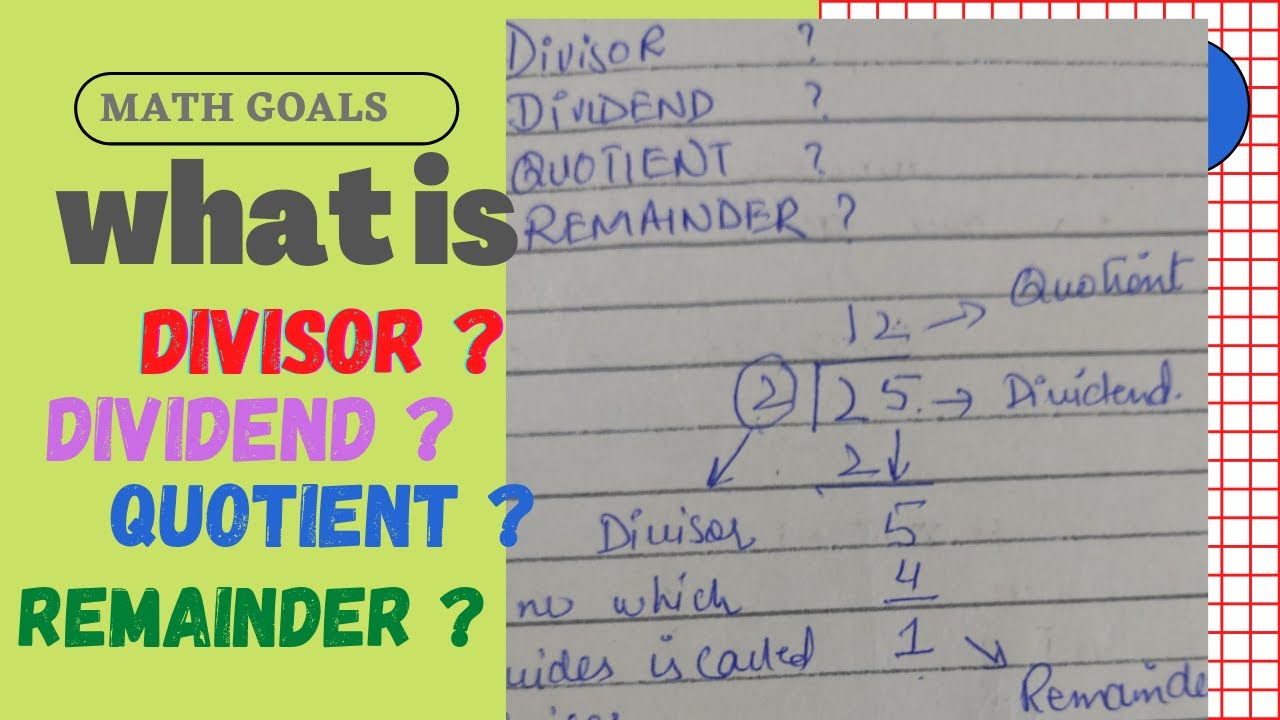 MATH GOALS
what is
DIVISOR ?
DIVIDEND ?
QUOTIENT ?
REMAINDER ?
DivisoR ?
DiviDEND ?
QUOTIENT ?
REMAINDER ?
12 → Quotient
2 25 → Dividend.
2 ↓
Divisor 5
no which 4
uides is called 1
Remainde